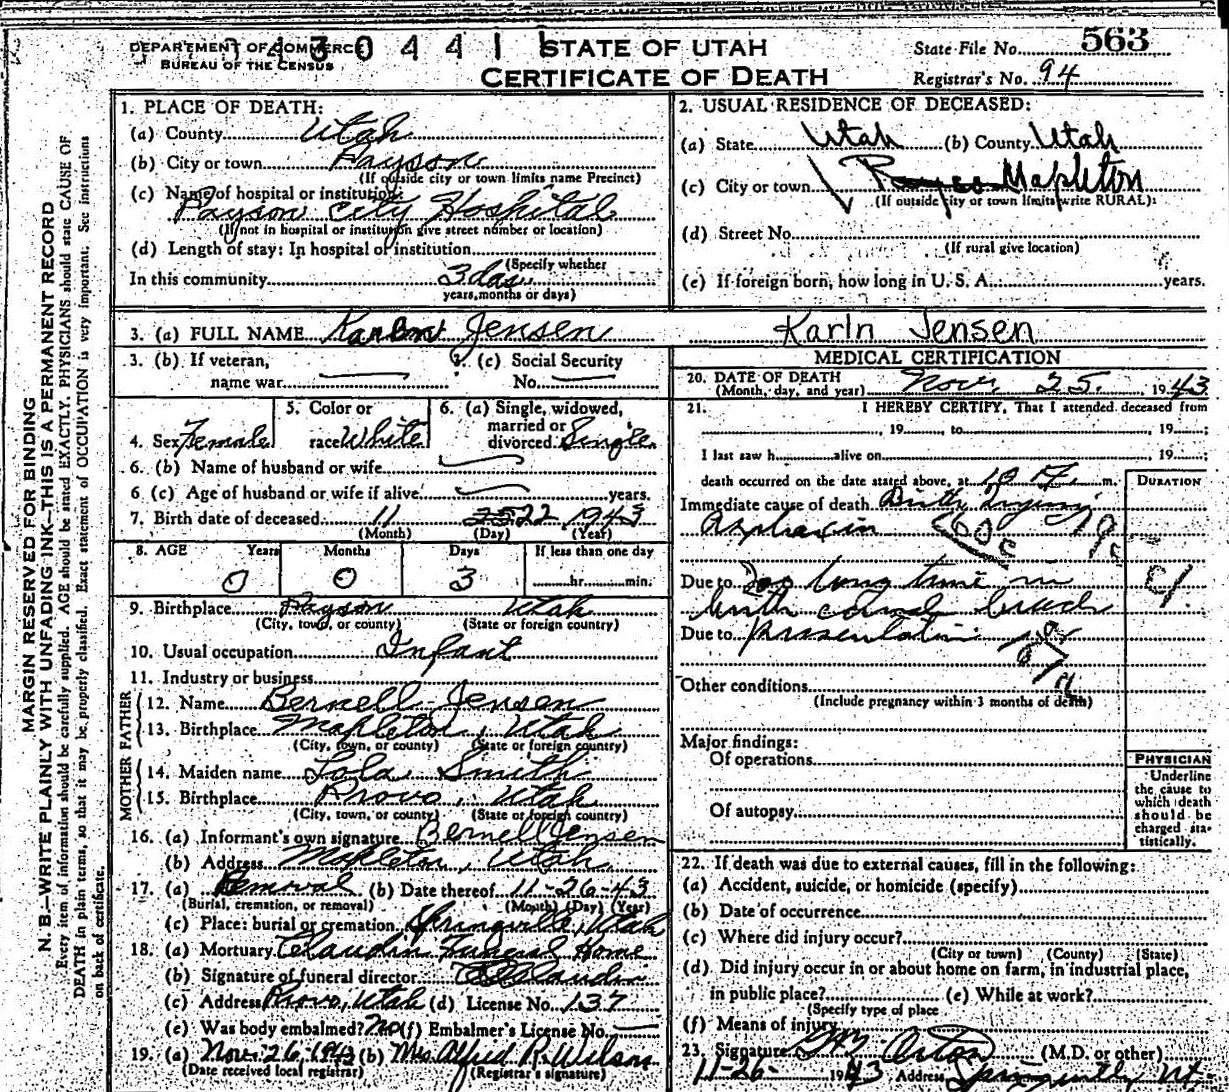 DEPARTMENT OF COMMERCE
BUREAU OF THE CENSUS
430441
STATE OF UTAH
CERTIFICATE OF DEATH
State File No. 563
Registrar's No. 94
MARGIN RESERVED FOR BINDING
N. B.—WRITE PLAINLY WITH UNFADING INK—THIS IS A PERMANENT RECORD
Every item of information should be carefully supplied. AGE should be stated EXACTLY. PHYSICIANS should state CAUSE OF
DEATH in plain terms, so that it may be properly classified. Exact statement of OCCUPATION is very important. See instructions
on back of certificate.
1. PLACE OF DEATH:
(a) County Utah
(b) City or town Payson
(If outside city or town limits name Precinct)
(c) Name of hospital or institution:
Payson City Hospital
(If not in hospital or institution give street number or location)
(d) Length of stay: In hospital or institution
(Specify whether
In this community 3 days
years, months or days)
2. USUAL RESIDENCE OF DECEASED:
(a) State Utah (b) County Utah
(c) City or town Mapleton
(If outside city or town limits write RURAL)
(d) Street No.
(If rural give location)
(e) If foreign born, how long in U. S. A. years.
3. (a) FULL NAME Jensen Karln Jensen
3. (b) If veteran,
name war
3. (c) Social Security
No.
4. Sex Female
5. Color or
race White
6. (a) Single, widowed,
married or
divorced Single
6. (b) Name of husband or wife
6. (c) Age of husband or wife if alive years.
7. Birth date of deceased 11 22 1943
(Month) (Day) (Year)
8. AGE Years Months Days If less than one day
0 0 3 hr. min.
9. Birthplace Payson Utah
(City, town, or county) (State or foreign country)
10. Usual occupation Infant
11. Industry or business
FATHER
12. Name Bernell Jensen
13. Birthplace Mapleton, Utah
(City, town, or county) (State or foreign country)
MOTHER
14. Maiden name Lola Smith
15. Birthplace Provo, Utah
(City, town, or county) (State or foreign country)
16. (a) Informant's own signature Bernell Jensen
(b) Address Mapleton, Utah
17. (a) Removal (b) Date thereof 11-26-43
(Burial, cremation, or removal) (Month) (Day) (Year)
(c) Place: burial or cremation Springville, Utah
18. (a) Mortuary Claudin Funeral Home
(b) Signature of funeral director Claudin
(c) Address Provo, Utah (d) License No. 137
(e) Was body embalmed? No (f) Embalmer's License No.
19. (a) Nov. 26, 1943 (b) Mrs. Alfred R. Wilson
(Date received local registrar) (Registrar's signature)
MEDICAL CERTIFICATION
20. DATE OF DEATH
(Month, day, and year) Nov. 25. 1943
21. I HEREBY CERTIFY, That I attended deceased from
, 19 to , 19 ;
I last saw h alive on , 19 ;
death occurred on the date stated above, at 10 m.
DURATION
Immediate cause of death Birth Injury
160c
Due to Too long time in
birth canal breech
Due to presentation
Other conditions
(Include pregnancy within 3 months of death)
Major findings:
Of operations
Of autopsy
PHYSICIAN
Underline
the cause to
which death
should be
charged sta-
tistically.
22. If death was due to external causes, fill in the following:
(a) Accident, suicide, or homicide (specify)
(b) Date of occurrence
(c) Where did injury occur?
(City or town) (County) (State)
(d) Did injury occur in or about home on farm, in industrial place,
in public place? (e) While at work?
(Specify type of place
(f) Means of injury
23. Signature Orton (M.D. or other)
11-26- 1943 Address Springville Ut.